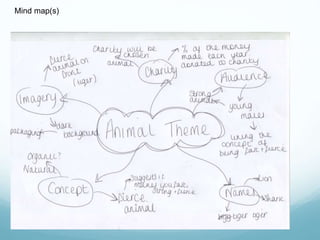 Mind map(s)
Charity will be
chosen
animal
% of the money
made each year
donated to charity
Charity
fierce
animal on
front
(tiger)
Audience
Strong
animals
young
males
using the
concept of
being fast + fierce
Imagery
dark
background
packaging
Animal Theme
Organic?
Natural
Concept
suggests it
makes you fast
strong + fierce
fierce
animal
Names
lion
shark
tiger